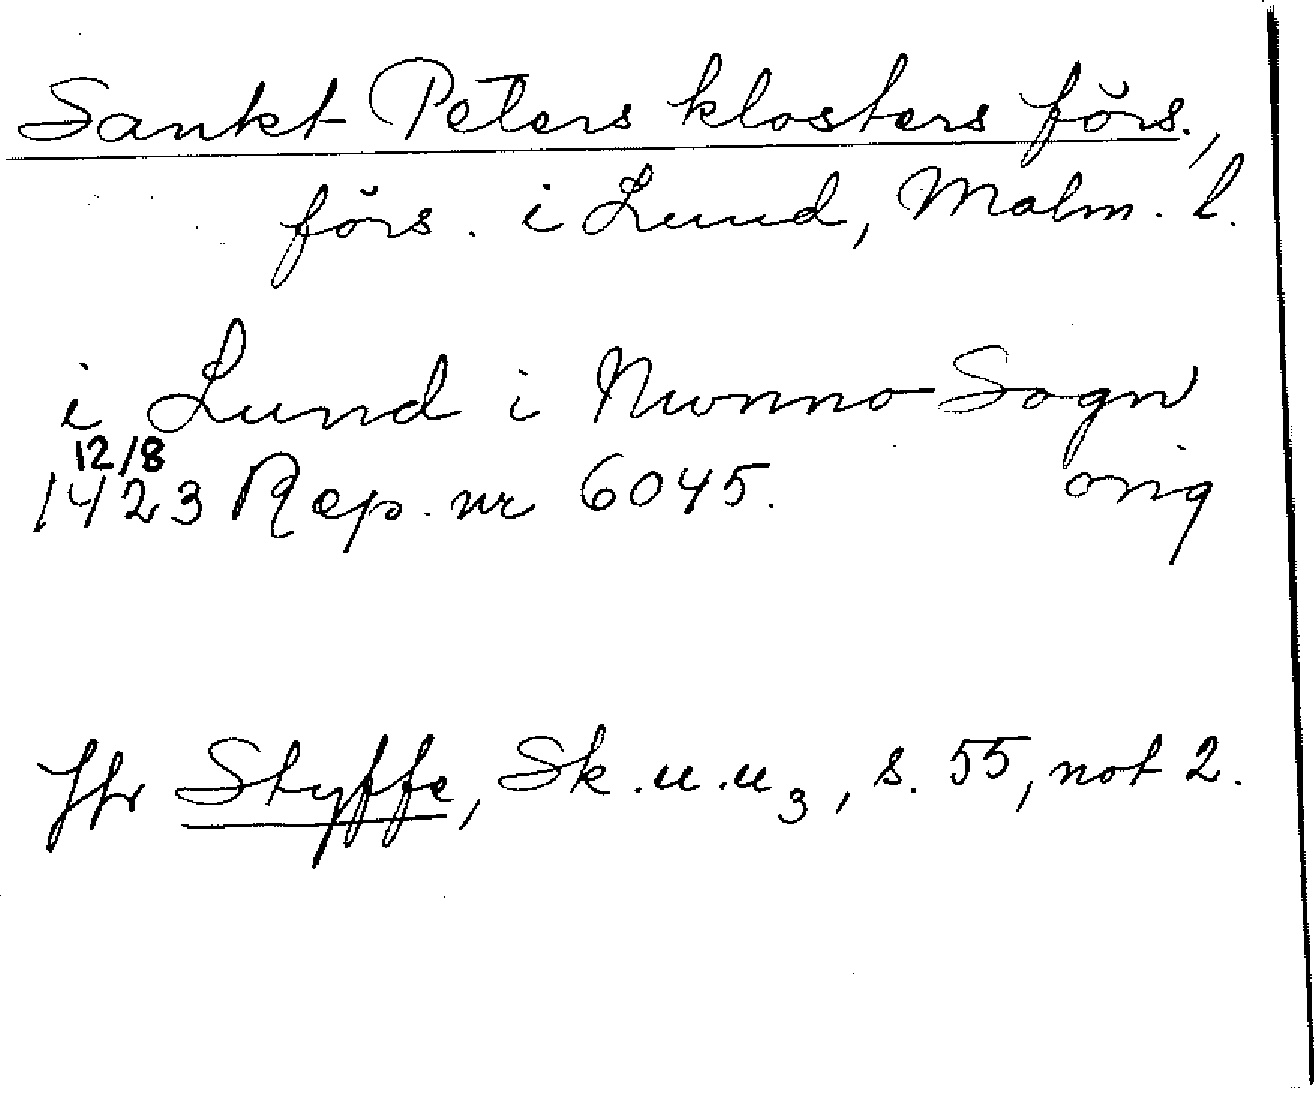 Sankt Peters klosters förs.,
förs. i Lund, Malm. l.
i Lund i Nunno Sogn
12/8
1423 Rep. nr 6045. orig
Jfr Styffe, Sk.u.u3, s. 55, not 2.